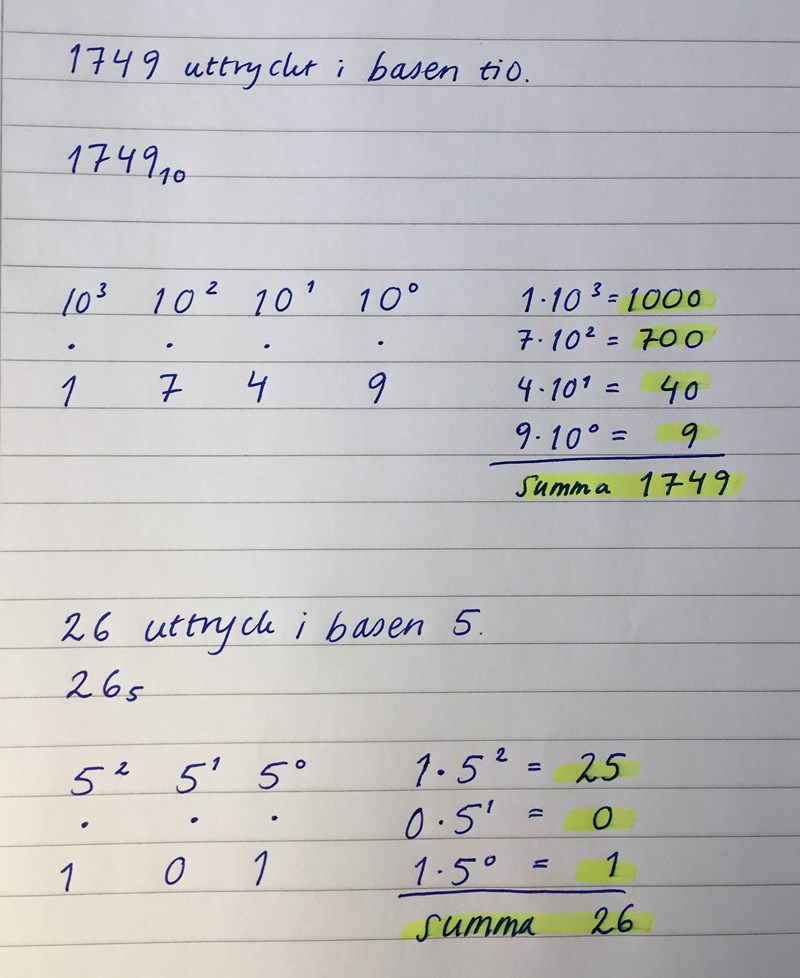 1749 uttryckt i basen tio.
1749₁₀
10³ 10² 10¹ 10⁰ 1·10³ = 1000
· · · · 7·10² = 700
1 7 4 9 4·10¹ = 40
9·10⁰ = 9
summa 1749
26 uttryck i basen 5.
26₅
5² 5¹ 5⁰ 1·5² = 25
· · · 0·5¹ = 0
1 0 1 1·5⁰ = 1
summa 26